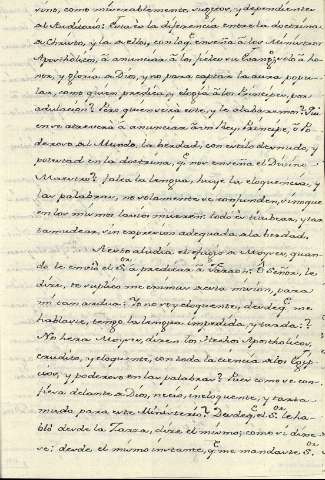 vono, como miserablemente, sugetos, y dependientes
al Auditorio: Esta es la diferencia entre la doctrina
a Christo, y la a ellos, con lo q. enseña à los Ministros
Apostholicos, à anunciar à los fieles su Evangelio à ho-
nor, y gloria a Dios, y no para captar la aura popu-
lar, como quien predica, y elogia à los Principes, por
adulacion? Pero quien será este, y le alabaremos? Qui-
en se atreverá à anunciar à un Rey, Principe, ò Po-
deroso al Mundo, la verdad, con estilo desnudo, y
potestad en la doctrina, q. nos enseña el Divino
Maestro? falta la lengua, huye la eloquencia, y
las palabras, no solamente se confunden, sino que
en los mismos labios mueren: todo es titubear, y tar-
tamudear, sin expresion adequada a la verdad.
A esto aludia el efugio a Moyses, quan-
do le embió el S.or à predicar à Faraon: O Señor, le
dize, te suplico me eximas a esta mision, para
mi tan ardua: Yo no soy eloquente, desde q. me
hablaste, tengo la lengua impedida, y tarda?
No hera Moyses, dizen los Hechos Apostholicos,
erudito, y eloquente, con toda la ciencia a los Egip-
cios, y poderoso en las palabras? Pues como se con-
fiesa delante a Dios, necio, ineloquente, y tarta-
mudo para este Ministerio? Desde q. el S.or le ha-
bló desde la Zarza, dize el mismo; como si dixe-
se: desde el mismo instante, q. me mandaste, S.or